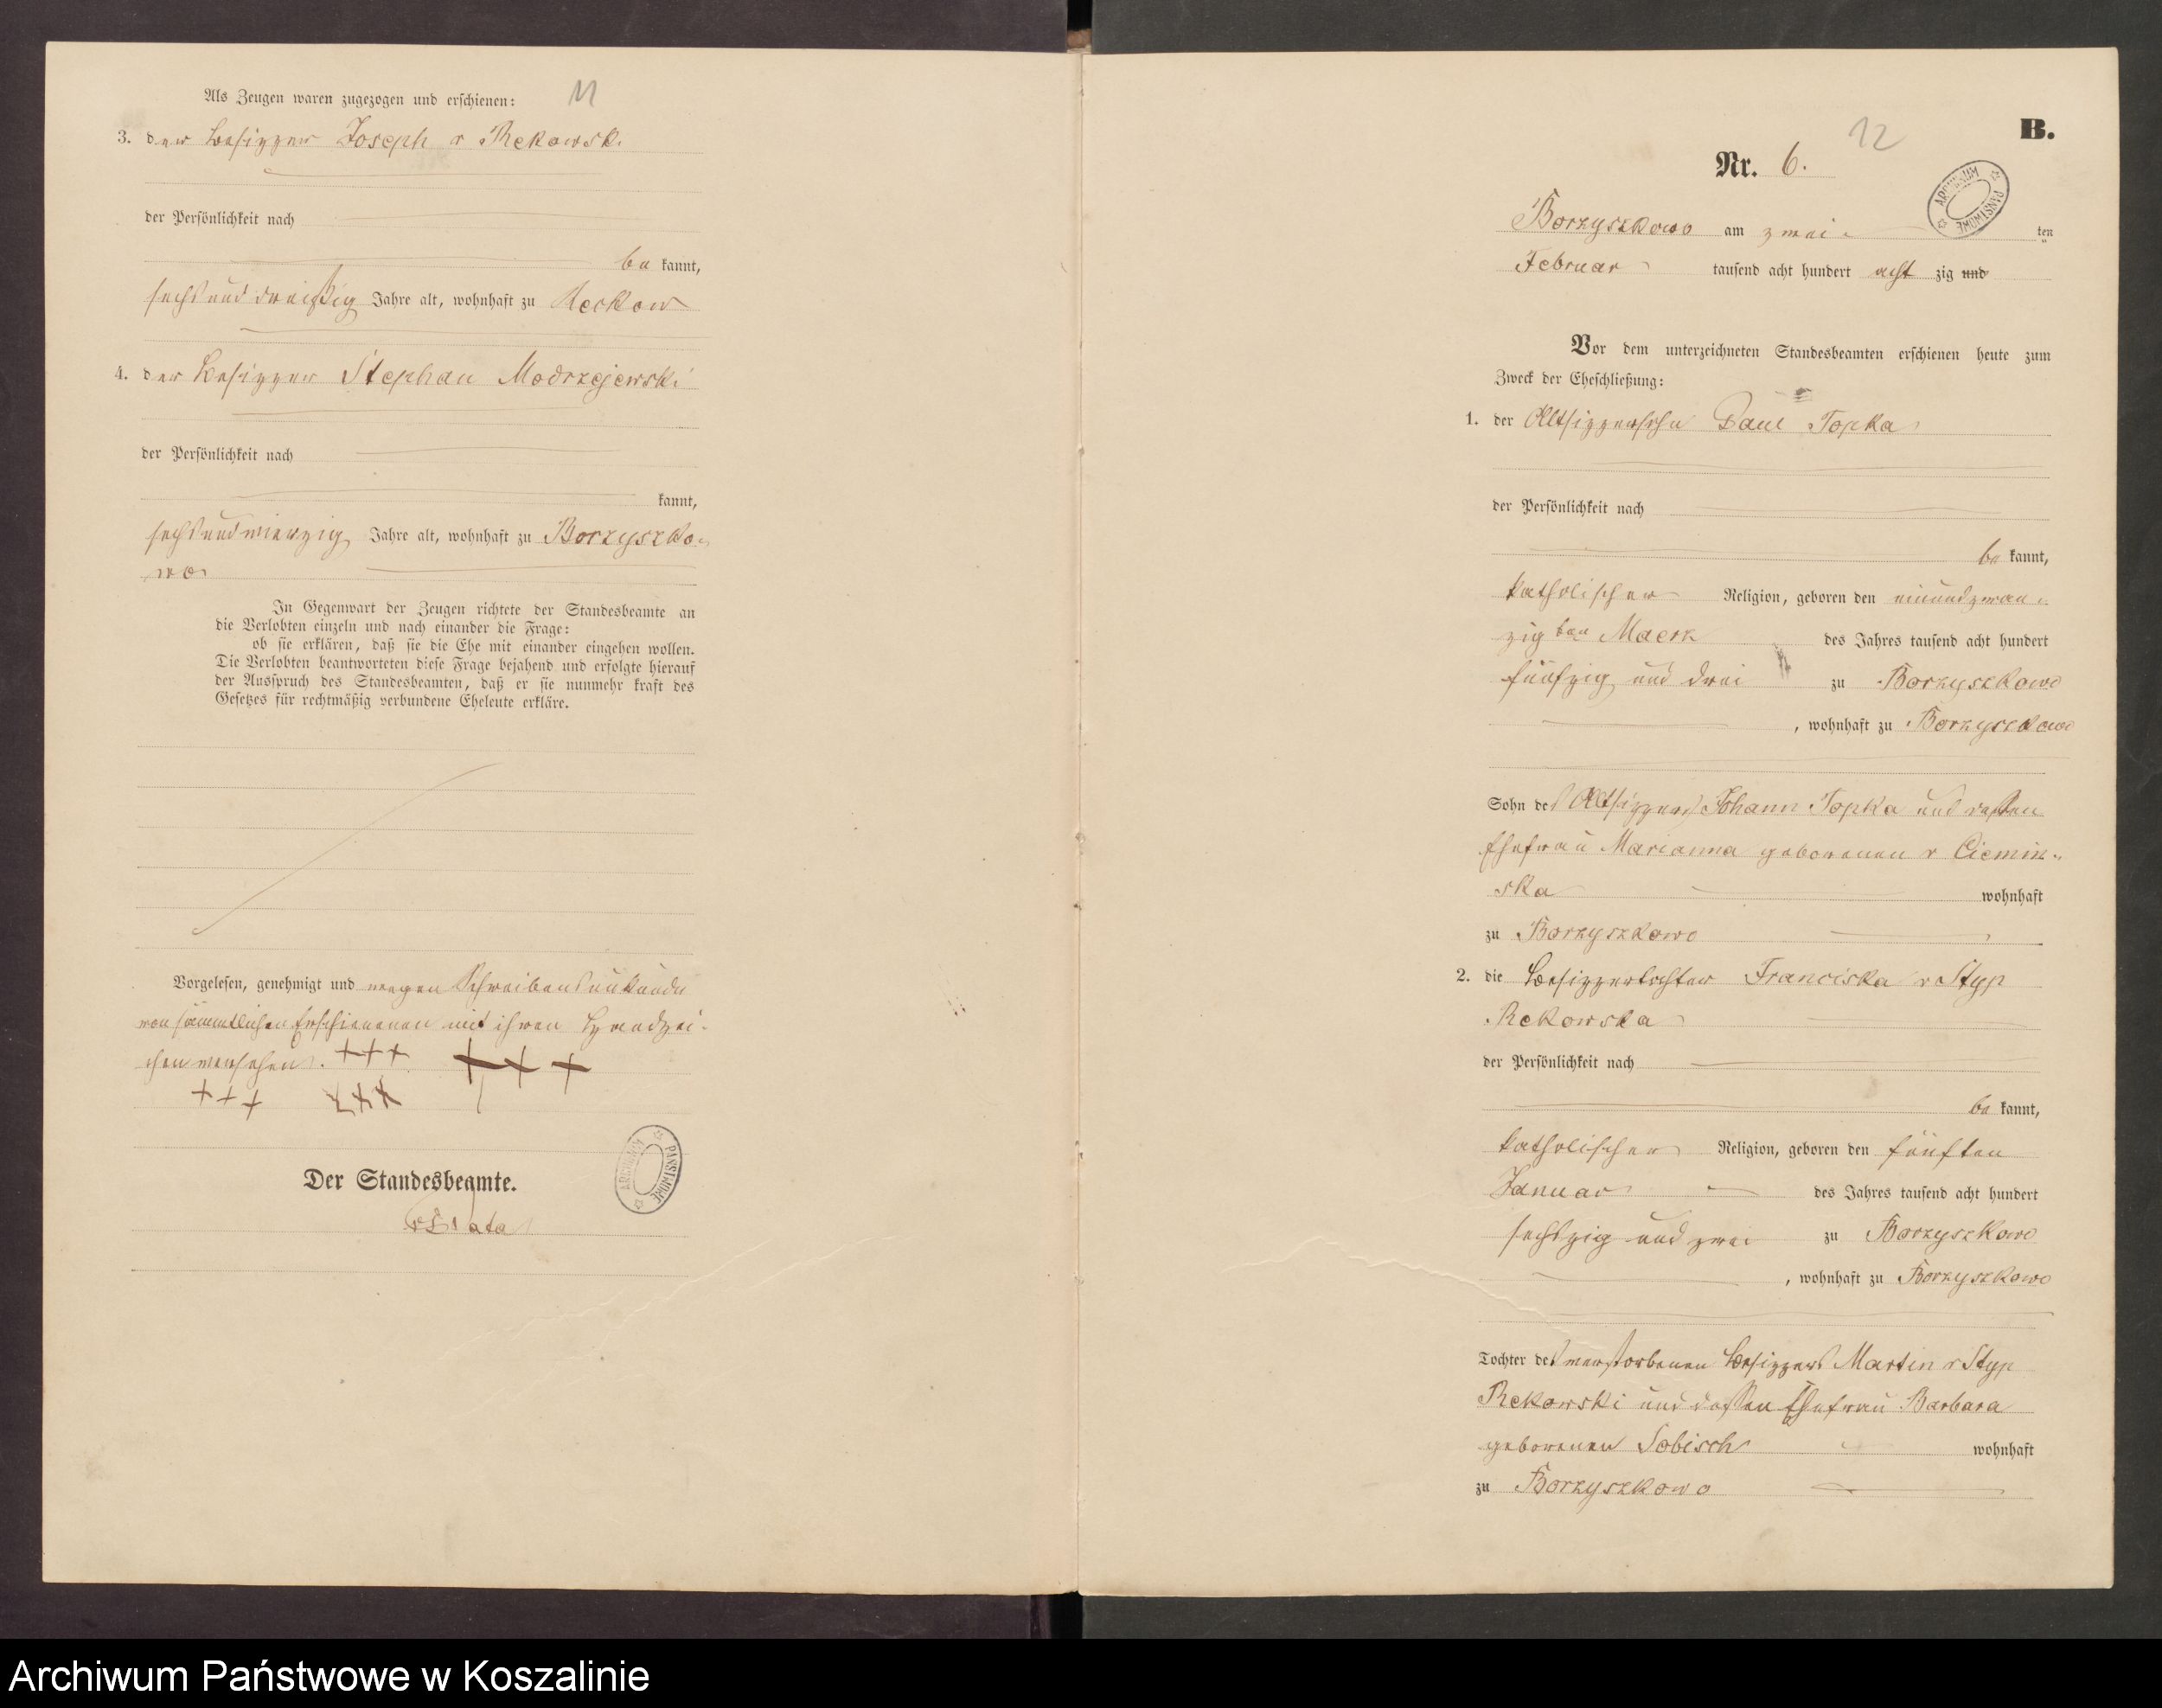 Als Zeugen waren zugezogen und erschienen:
11
3. der Besitzer Joseph v Rekowski
der Persönlichkeit nach
be kannt,
sechsunddreißig Jahre alt, wohnhaft zu Reckow
4. der Besitzer Stephan Modrzejewski
der Persönlichkeit nach
kannt,
sechsundvierzig Jahre alt, wohnhaft zu Borzyszko-
wo
In Gegenwart der Zeugen richtete der Standesbeamte an
die Verlobten einzeln und nach einander die Frage:
ob sie erklären, daß sie die Ehe mit einander eingehen wollen.
Die Verlobten beantworteten diese Frage bejahend und erfolgte hierauf
der Ausspruch des Standesbeamten, daß er sie nunmehr kraft des
Gesetzes für rechtmäßig verbundene Eheleute erkläre.
Vorgelesen, genehmigt und wegen Schreibensunkunde
von sämmtlichen Erschienenen mit ihren Handzei-
chen versehen. +++ +++
+++ +++
ARCHIWUM PAŃSTWOWE
Der Standesbeamte.
12
B.
Nr. 6.
ARCHIWUM PAŃSTWOWE
Borzyszkowo am zwei- ten
Februar tausend acht hundert acht zig und
Vor dem unterzeichneten Standesbeamten erschienen heute zum
Zweck der Eheschließung:
1. der Altsitzersohn Paul Topka
der Persönlichkeit nach
be kannt,
katholischer Religion, geboren den einundzwan-
zig ten Maerz des Jahres tausend acht hundert
fünfzig und drei zu Borzyszkowo
, wohnhaft zu Borzyszkowo
Sohn des Altsitzers Johann Topka und dessen
Ehefrau Marianna geborenen v Ciemin-
ska wohnhaft
zu Borzyszkowo
2. die Besitzertochter Franciska v Styp
Rekowska
der Persönlichkeit nach
be kannt,
katholischer Religion, geboren den fünften
Januar des Jahres tausend acht hundert
sechszig und zwei zu Borzyszkowo
, wohnhaft zu Borzyszkowo
Tochter des verstorbenen Besitzers Martin v Styp
Rekowski und dessen Ehefrau Barbara
geborenen Sobisch wohnhaft
zu Borzyszkowo
Archiwum Państwowe w Koszalinie